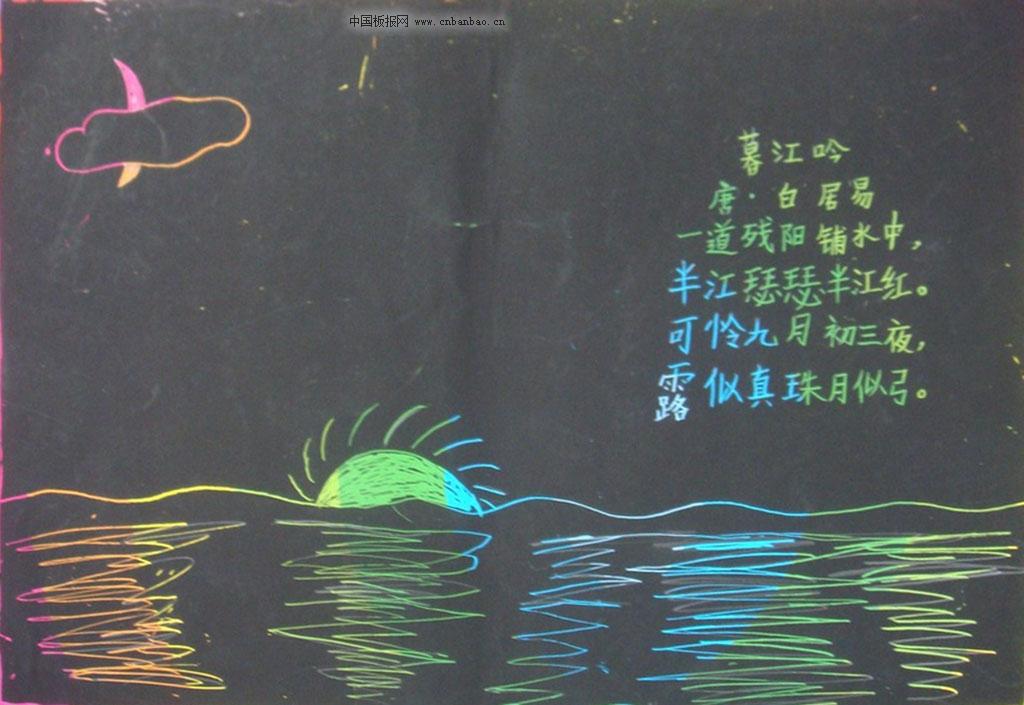 中国板报网 www.cnbanbao.cn
暮江吟
唐·白居易
一道残阳铺水中，
半江瑟瑟半江红。
可怜九月初三夜，
露似真珠月似弓。